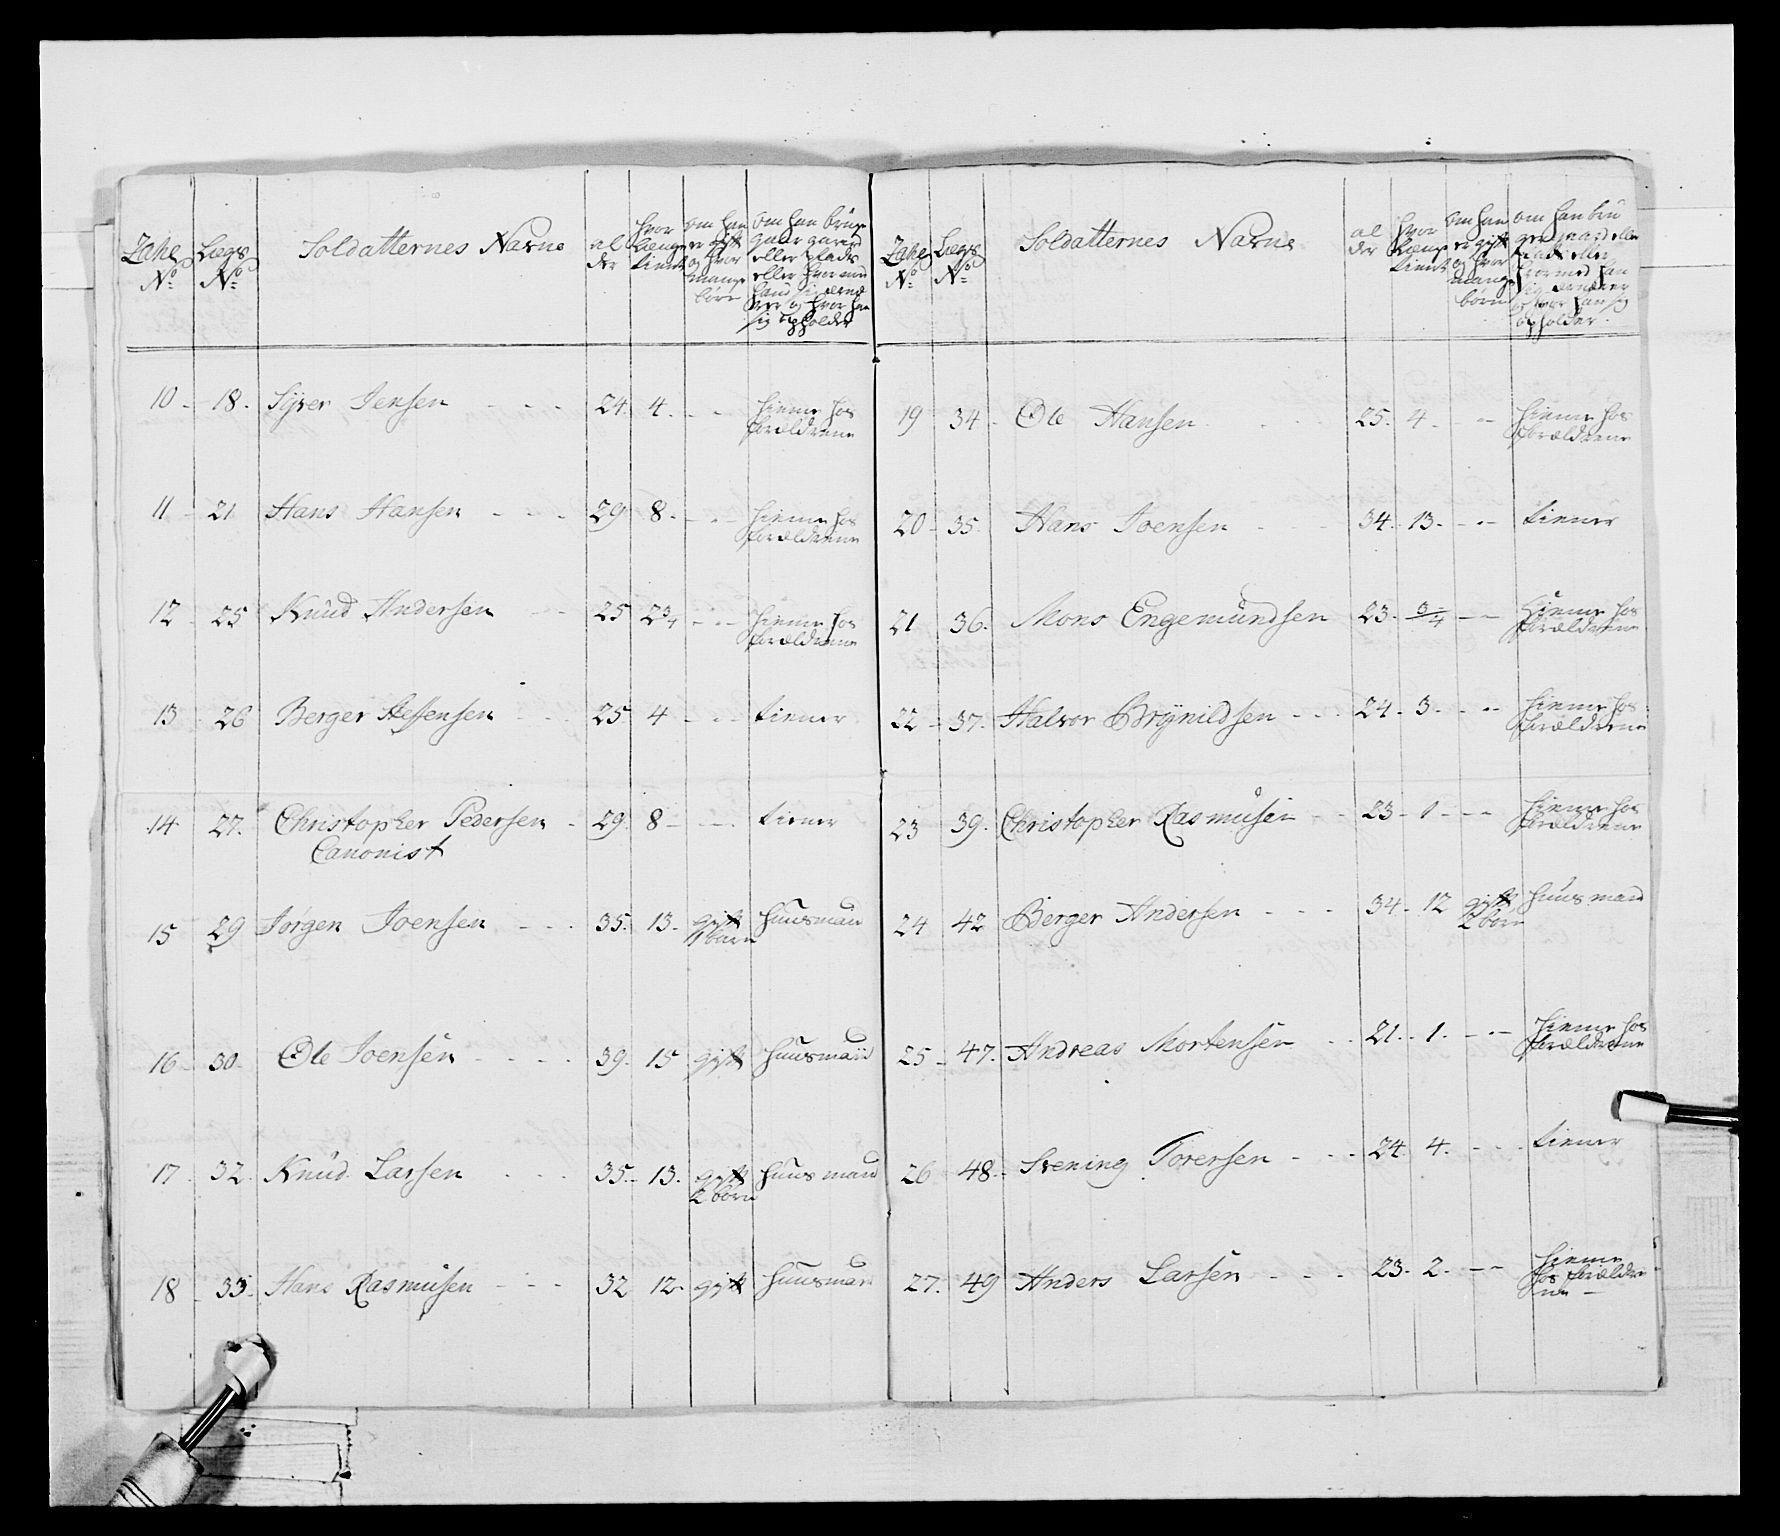 Zahl N:o | Lægs N:o | Soldatternes Nafne | al der | hvor længe tient | om han er gift og hvor mange børn | om han bruger gaard eller plads eller hvor med hand sig ernærer og hvor han sig opholder
10 - 18. Syver Jensen - - - 24. 4. - - hieme hos forældrene
11 - 21 Hans Hansen - - - 29 8. - - hieme hos forældrene
12 - 25 Knud Andersen - - 25 2 3/4 - - hieme hos forældrene
13 - 26 Berger - - 25 4 - - tiener
14 27. Christopher Pedersen - 29. 8 - - tiener
Canonist
15 29 Jørgen Joensen - - - 35. 13. gift 1 barn huusmand
16 - 30. Ole Joensen - - - 39. 15 gift huusmand
17 - 32. Knud Larsen - - - 35. 13. gift 2 børn huusmand
18 - 33. Hans Rasmusen - - - 32 12. gift huusmand
Zahl N:o | Lægs N:o | Soldatternes Nafne | al der | hvor længe tient | om han er gift og hvor mange børn | om han bru ger gaard eller plads eller hvormed han sig ernærer og hvor han sig opholder.
19 34 - Ole Hansen - - - 25. 4. - - hieme hos forældrene
20 - 35. Hans Joensen - - 34. 13. - - tiener
21 36. Mons Engemundsen 23. 3/4 - - Hieme hos forældrene
22 - 37. Halvor Brynildsen - - - 24 - 3. - - hieme hos forældrene
23 39. Christopher Rasmusen - - 23 - 1 - - - hieme hos forældrene
24 42 Berger Andersen - - - 34 - 12 gift 2 børn huusmand
25 - 47. Andreas Mortensen - - 21. - 1. - - hieme hos forældrene
26 48. Svening Torersen - - - 24. 4. - - tiener
27. 49 Anders Larsen - - - 23. 2. - - hieme hos forældre ne -